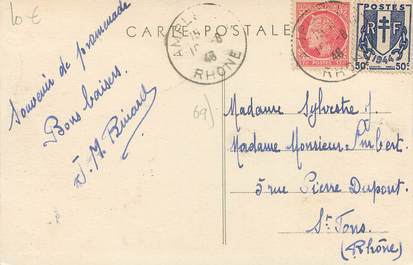 10 €
CARTE POSTALE
RHÔNE
48
POSTES
RF
1944
50c 50c
RHÔNE
48
69
Souvenir de promenade
Bons baisers.
J. M.
Madame Sylvestre
Madame Monsieur Imbert
3 rue Pierre Dupont
St Fons
(Rhône)